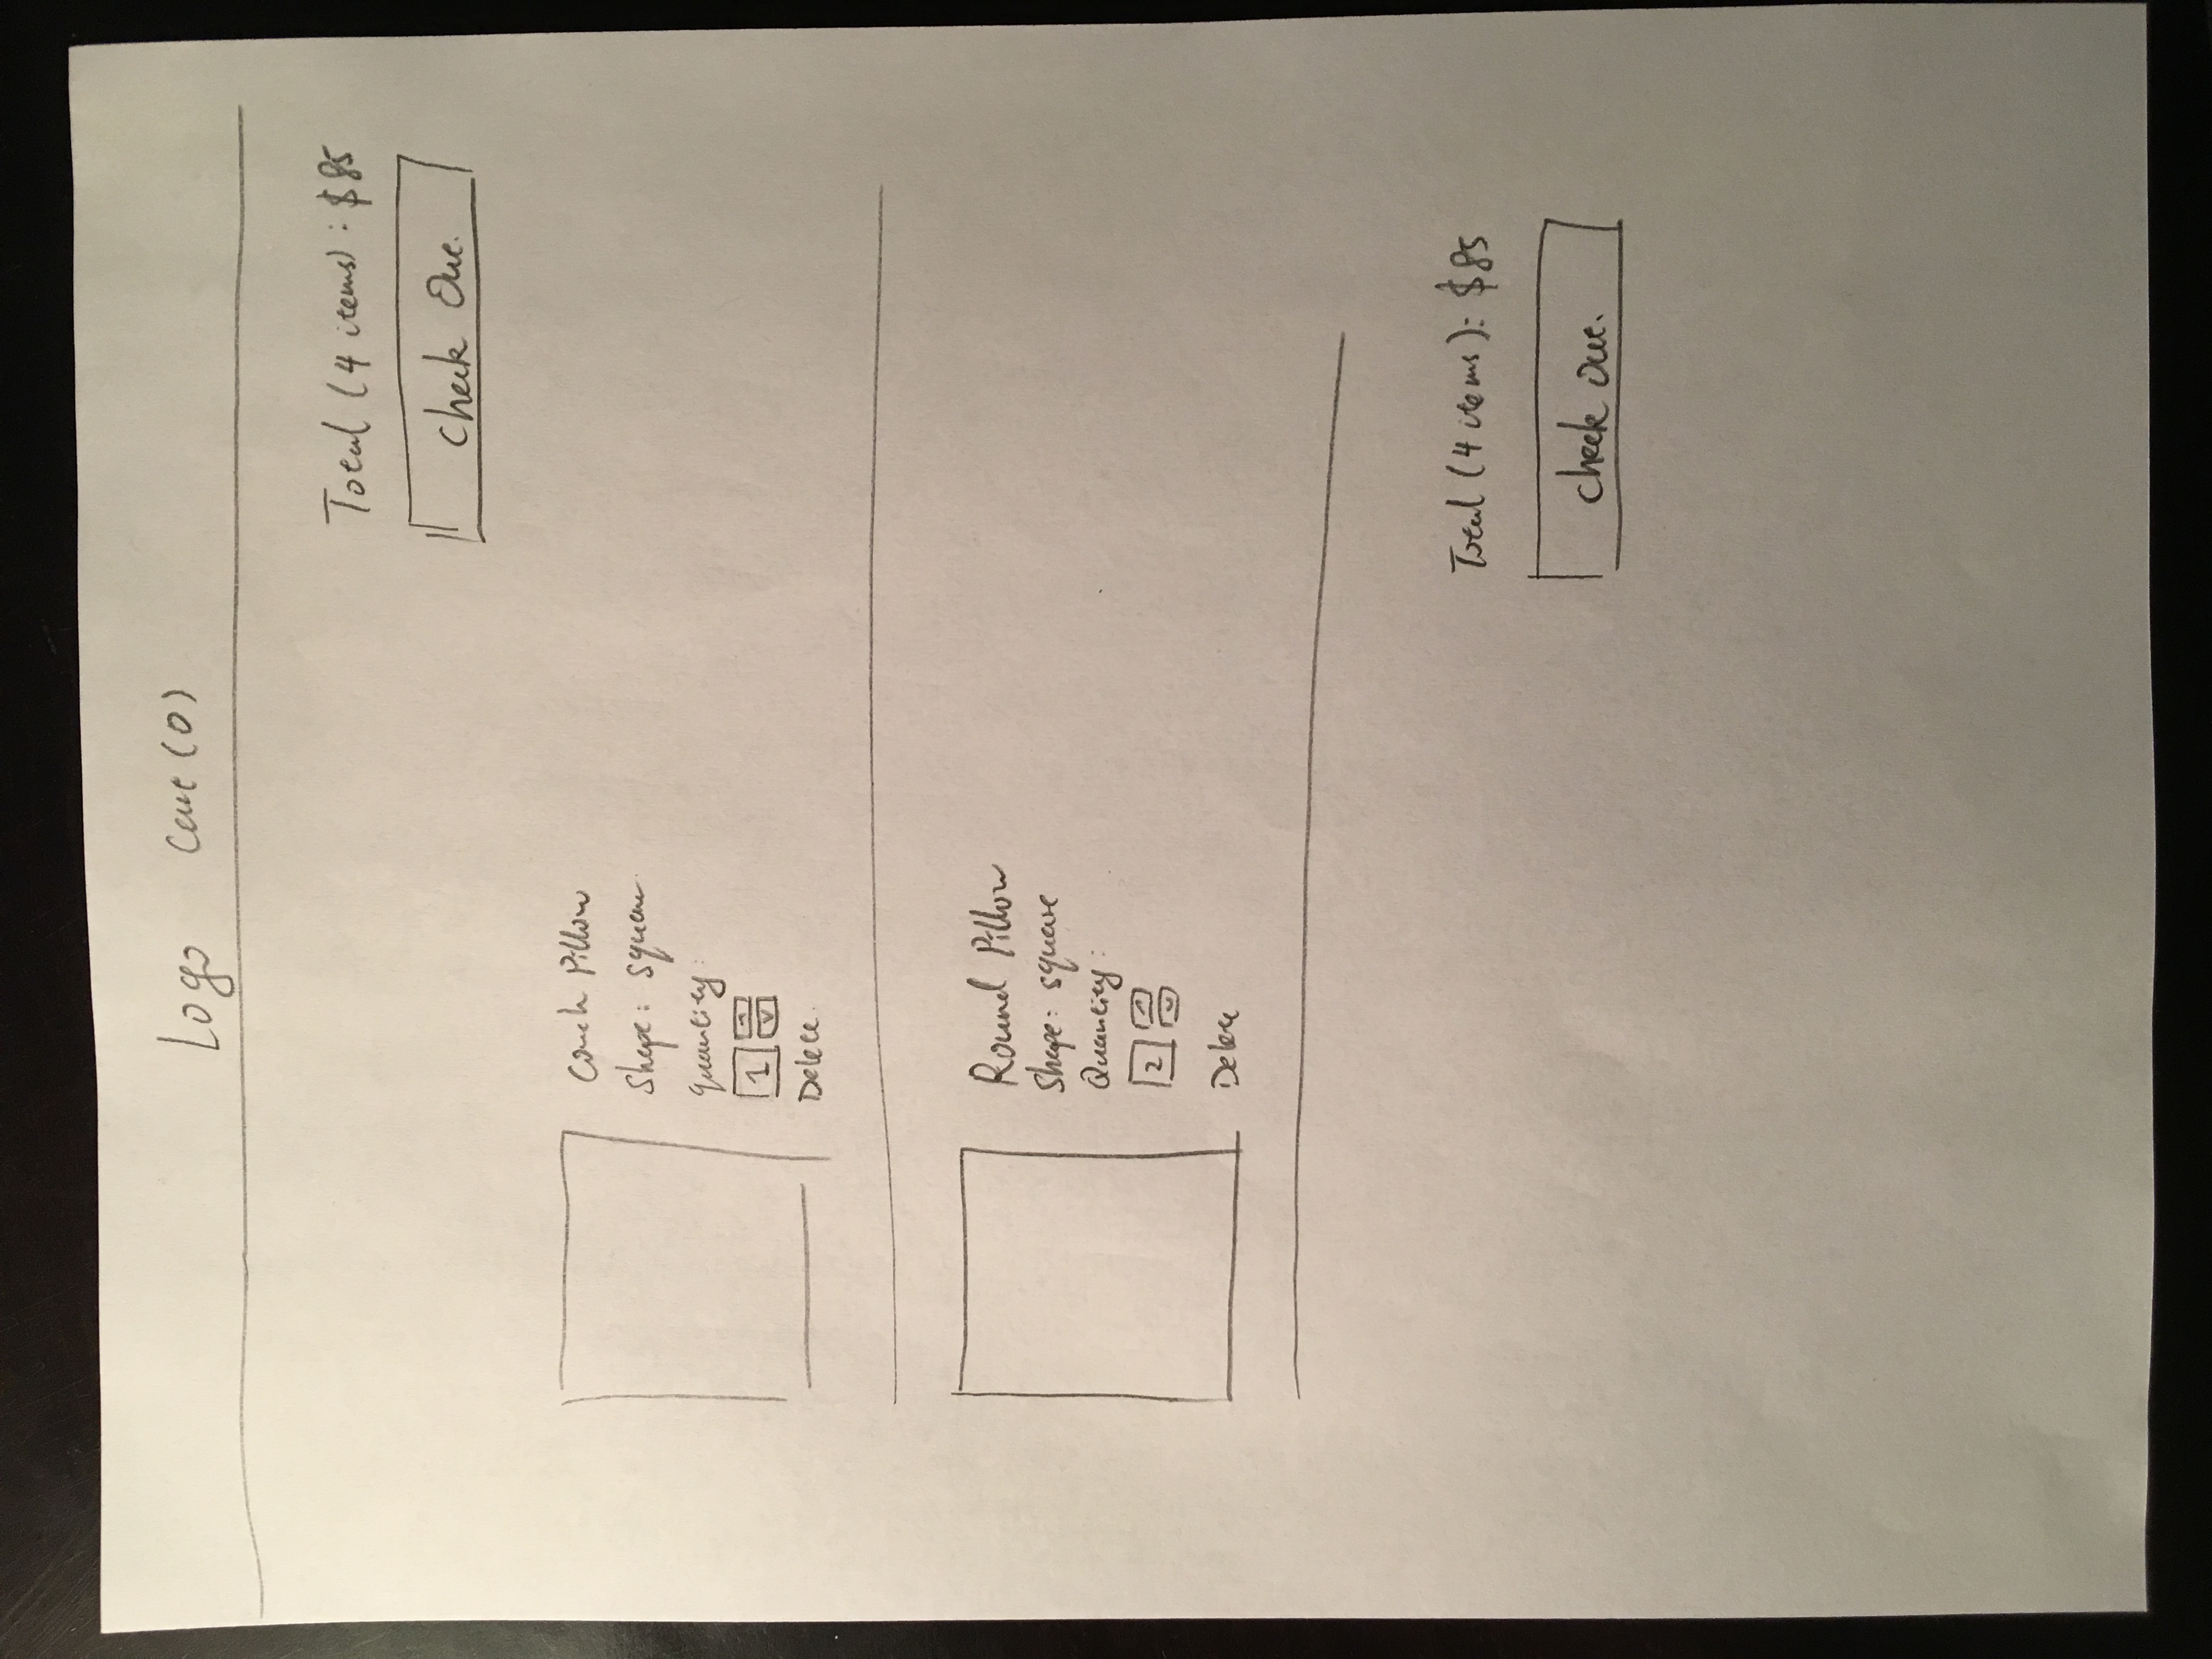 Logo Cart (0)
Total (4 items) : $85
Check Out.
Couch Pillow
Shape: square
quantity:
1
Delete.
Round Pillow
Shape: square
Quantity:
2
Delete
Total (4 items): $85
check out.